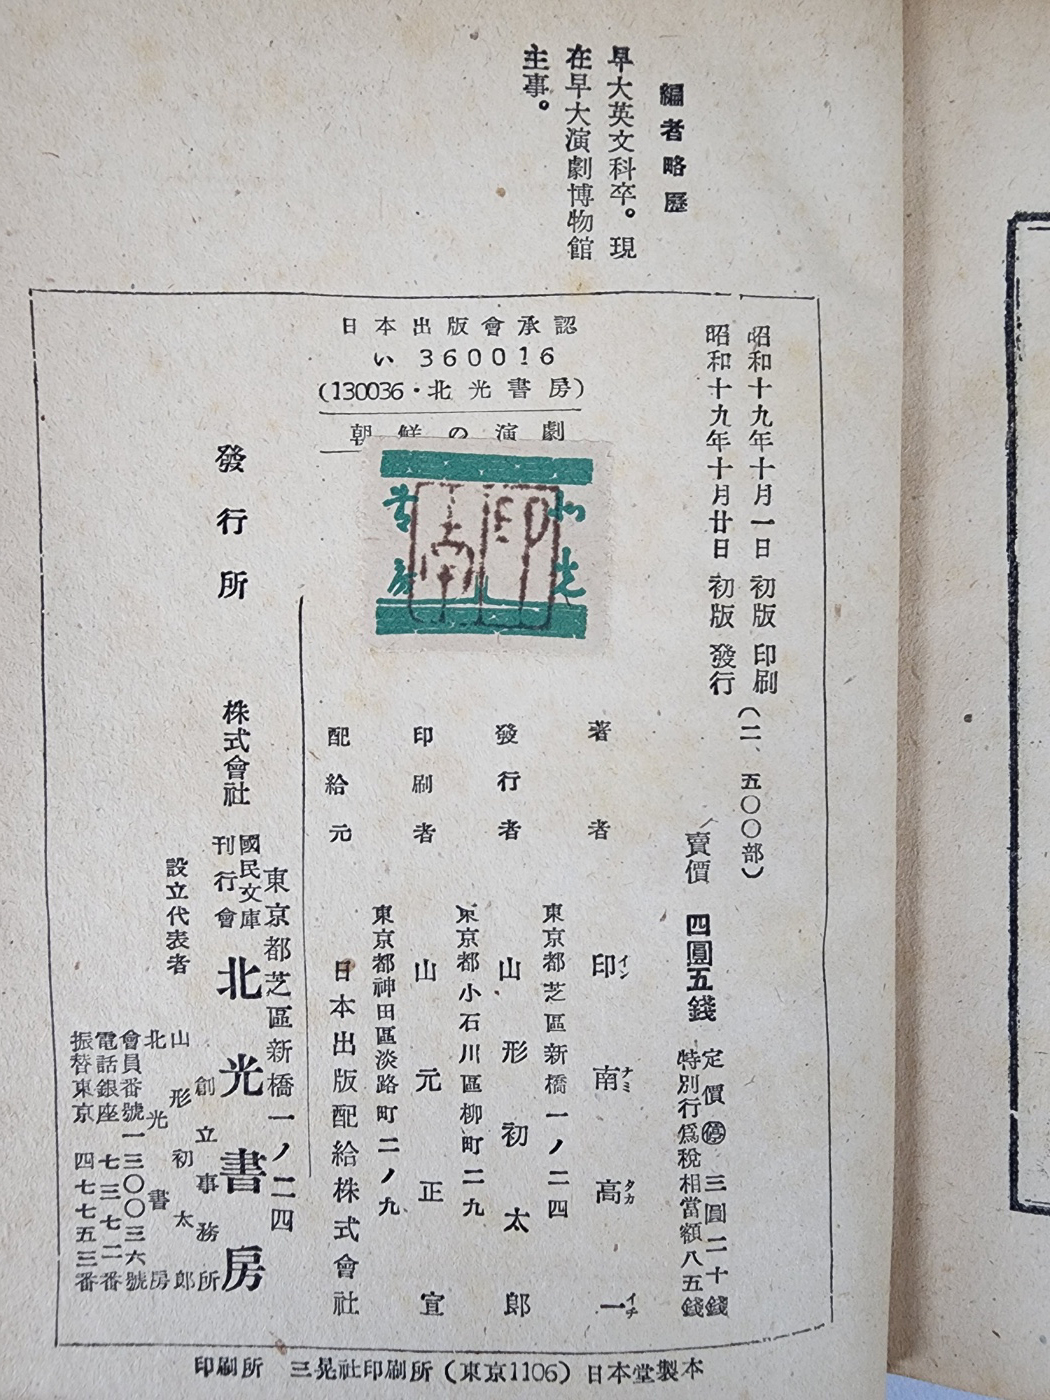 編者略歷
早大英文科卒。現
在早大演劇博物館
主事。
昭和十九年十月一日 初版 印刷 (二、五〇〇部)
昭和十九年十月廿日 初版 發行
賣價 四圓五錢
定價㊡ 三圓二十錢
特別行爲稅相當額八五錢
日本出版會承認
い 360016
(130036・北光書房)
朝鮮の演劇
北光
書房
印
南高
著者 印南高一
インナミタカイチ
東京都芝區新橋一ノ二四
發行者 山形初太郎
東京都小石川區柳町二九
印刷者 山元正宜
東京都神田區淡路町二ノ九
配給元 日本出版配給株式會社
東京都芝區新橋一ノ二四
發行所 株式會社 國民文庫刊行會 北光書房
創立事務所
設立代表者 山形初太郎
北光書房
會員番號一三〇〇三六號
電話銀座 七三七二番
振替東京 四七七五三番
印刷所 三晃社印刷所(東京1106)日本堂製本